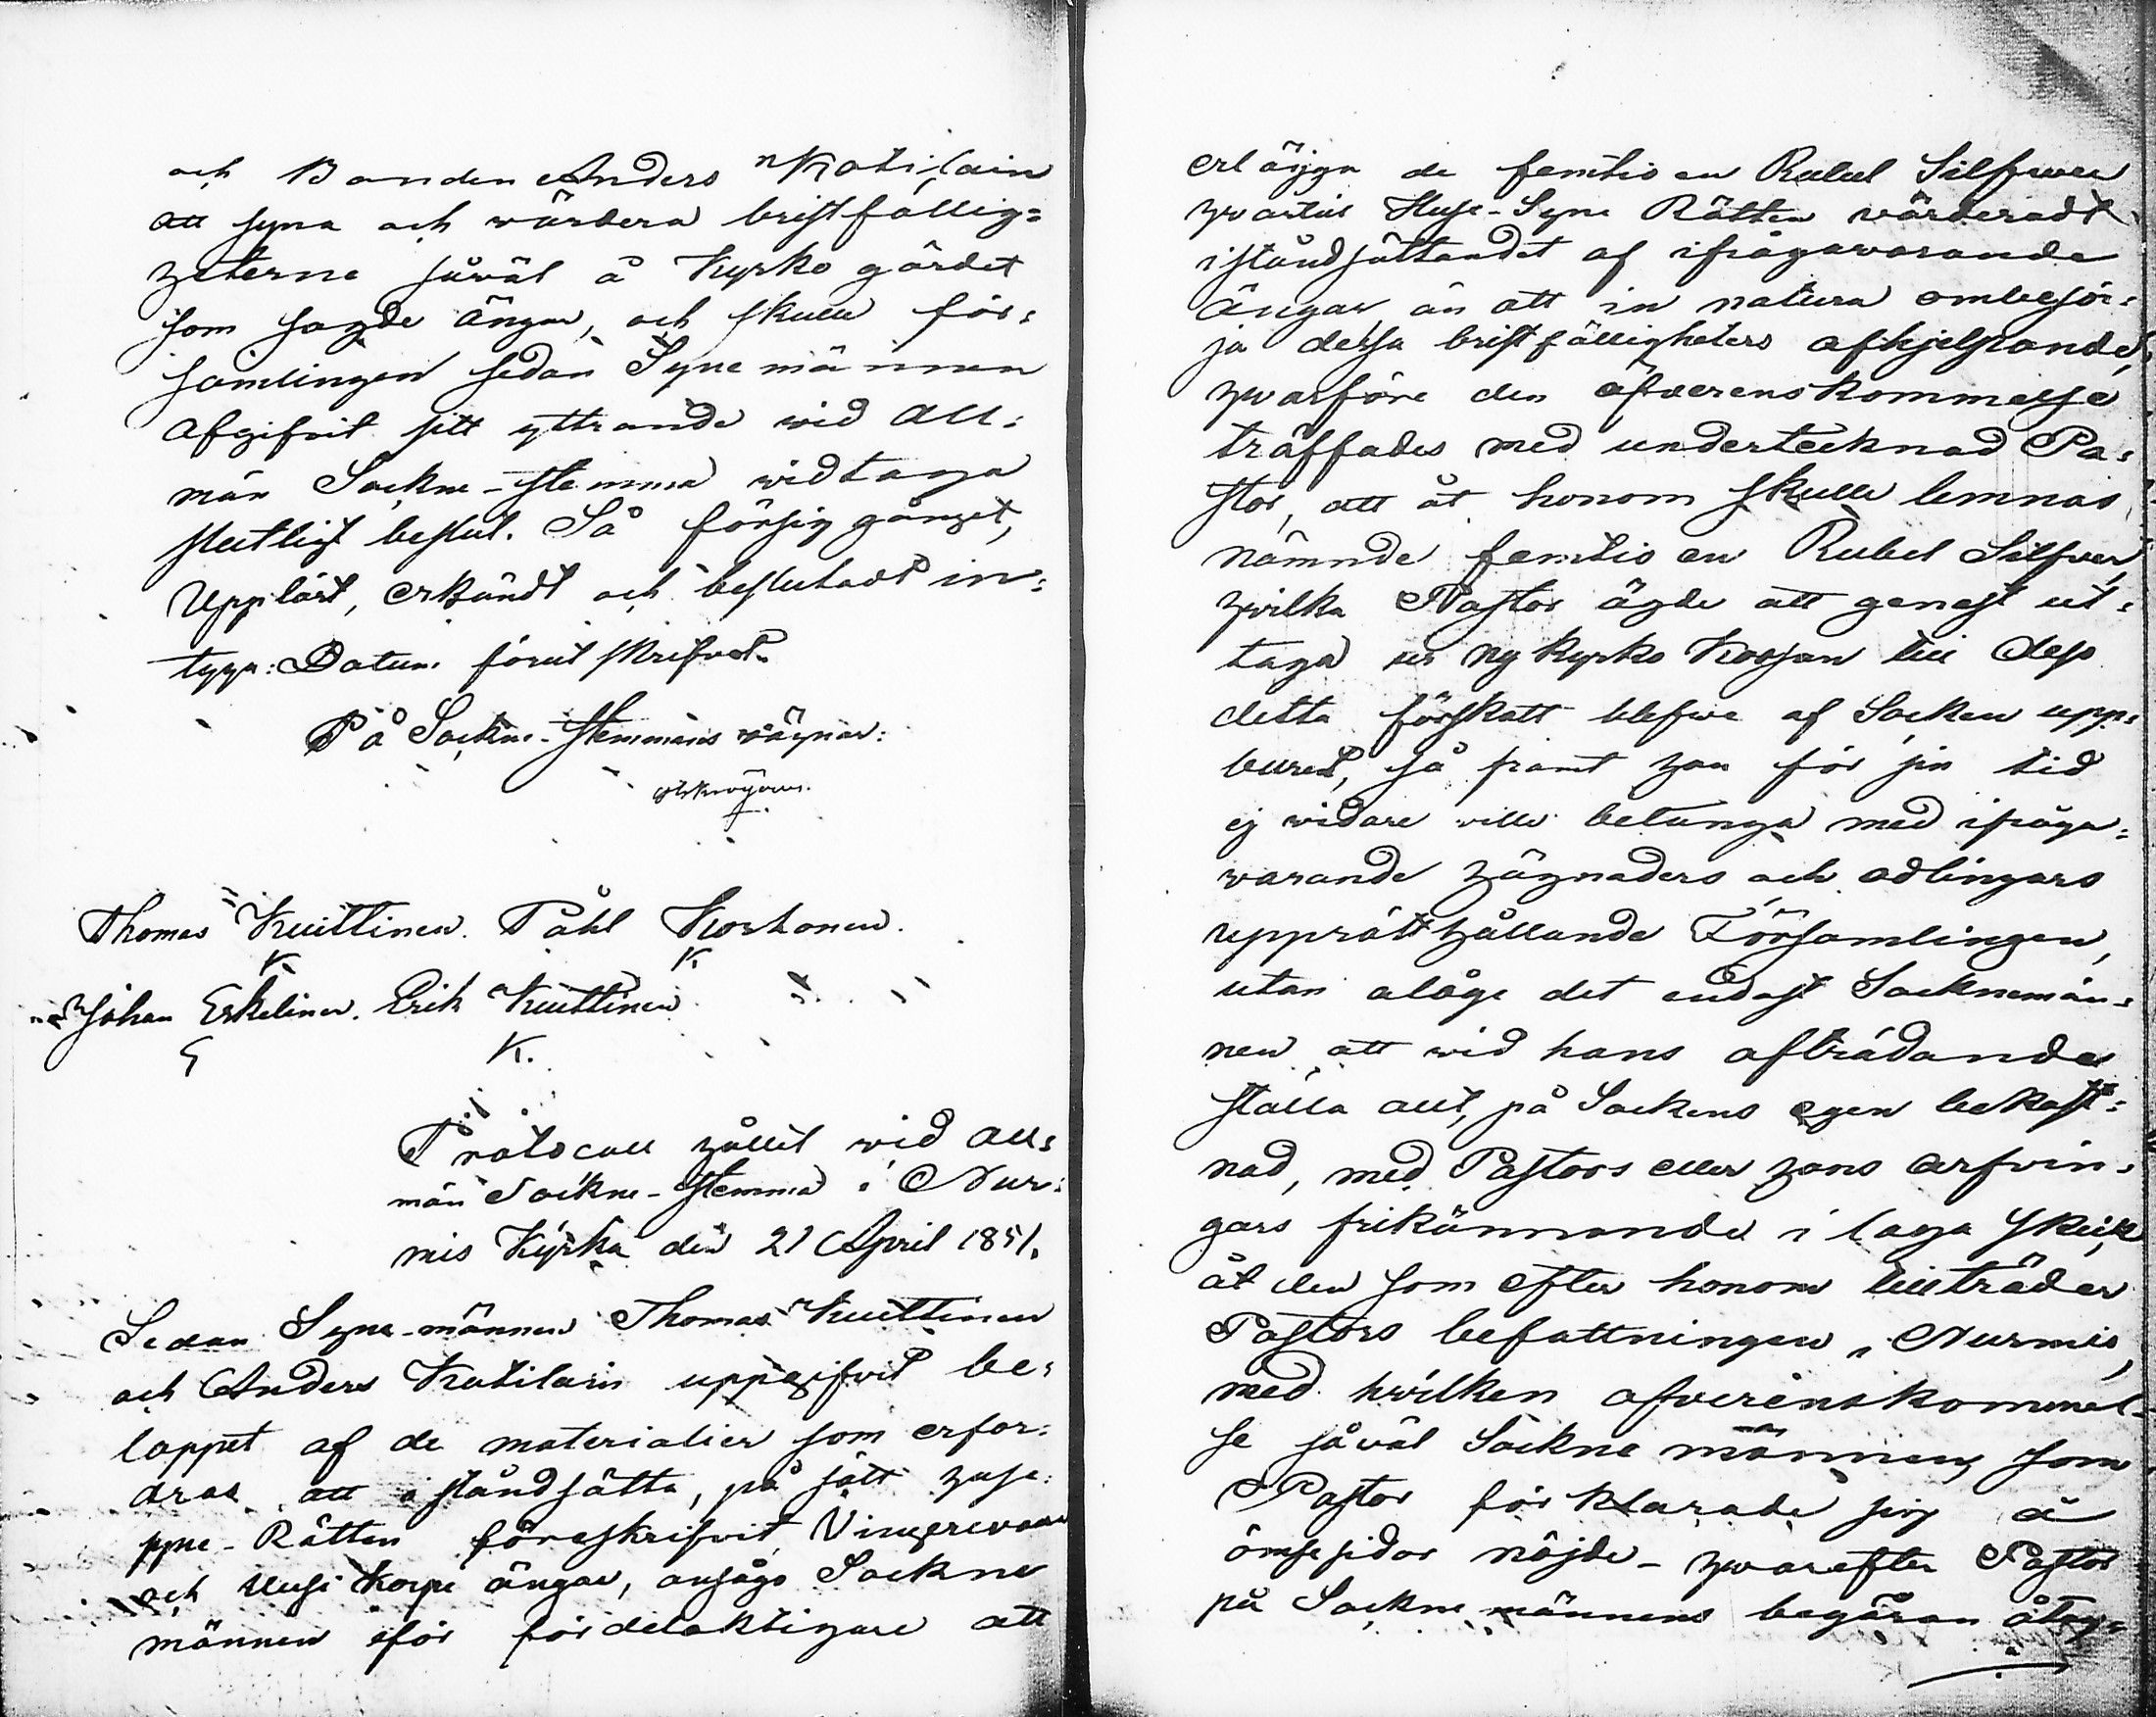 och Bonden Anders Katilain
att syna och wärdera bristfällig=
heterne såwäl å Kyrko gärdet
som sagde ängar, och skulle för=
samlingen sedan Synemännen
afgifvit sitt yttrande wid all=
män Sockne-stemma widtaga
slutligt beslut. Så försig gånget,
Uppläst, erkändt och beslutadt in=
tyga: Datum förut skrifvet.
På Sockne-Stemmans wägnar:
Thomas Kuittinen. Påhl Korhonen.
K K
Johan Eskelinen. Erik Kuittinen
E K.
Protocoll hållit wid all=
män Sockne-Stemma i Nur=
mis Kyrka den 21 April 1851.
Sedan Syne-männen Thomas Kuittinen
och Anders Katilain uppgifvit be=
loppet af de materialier som erfor=
dras att iståndsätta, på sätt huse=
syne-Rätten föreskrifvit,
och Uusi Korpi ängar, ansågo Sockne
männen för fördelaktigare att
erlägga de femtio en Rubel Silfwer
hwartill Huse-Syne Rätten wärderadt
iståndsättandet af ifrågawarande
ängar, än att in natura ombesör=
ja dessa bristfälligheters afhjelpande,
hwarföre den öfverenskommelse
träffades med undertecknad Pa=
stor, att åt honom skulle lemnas
nämnde femtio en Rubel Silfver,
hwilka Pastor ägde att genast ut=
taga ur ny kyrko Kassan till dess
detta förskott blefwe af Socken upp=
buret, så framt han för sin tid
ej widare wille betunga med ifråga=
warande hägnaders och odlingars
upprätthållande Församlingen,
utan ålåge det endast Socknemän=
nen, att wid hans afträdande
ställa allt, på Sockens egen bekost=
nad, med Pastors eller hans arfvin=
gars frikännande i laga skick
åt den som efter honom tillträder
Pastors befattningen i Nurmis,
med hwilken öfverenskommel=
se såwäl Sockne männen, som
Pastor förklarade sig å
ömse sidor nöjde - hwarefter Pastor
på Sockne männens begäran åtog=